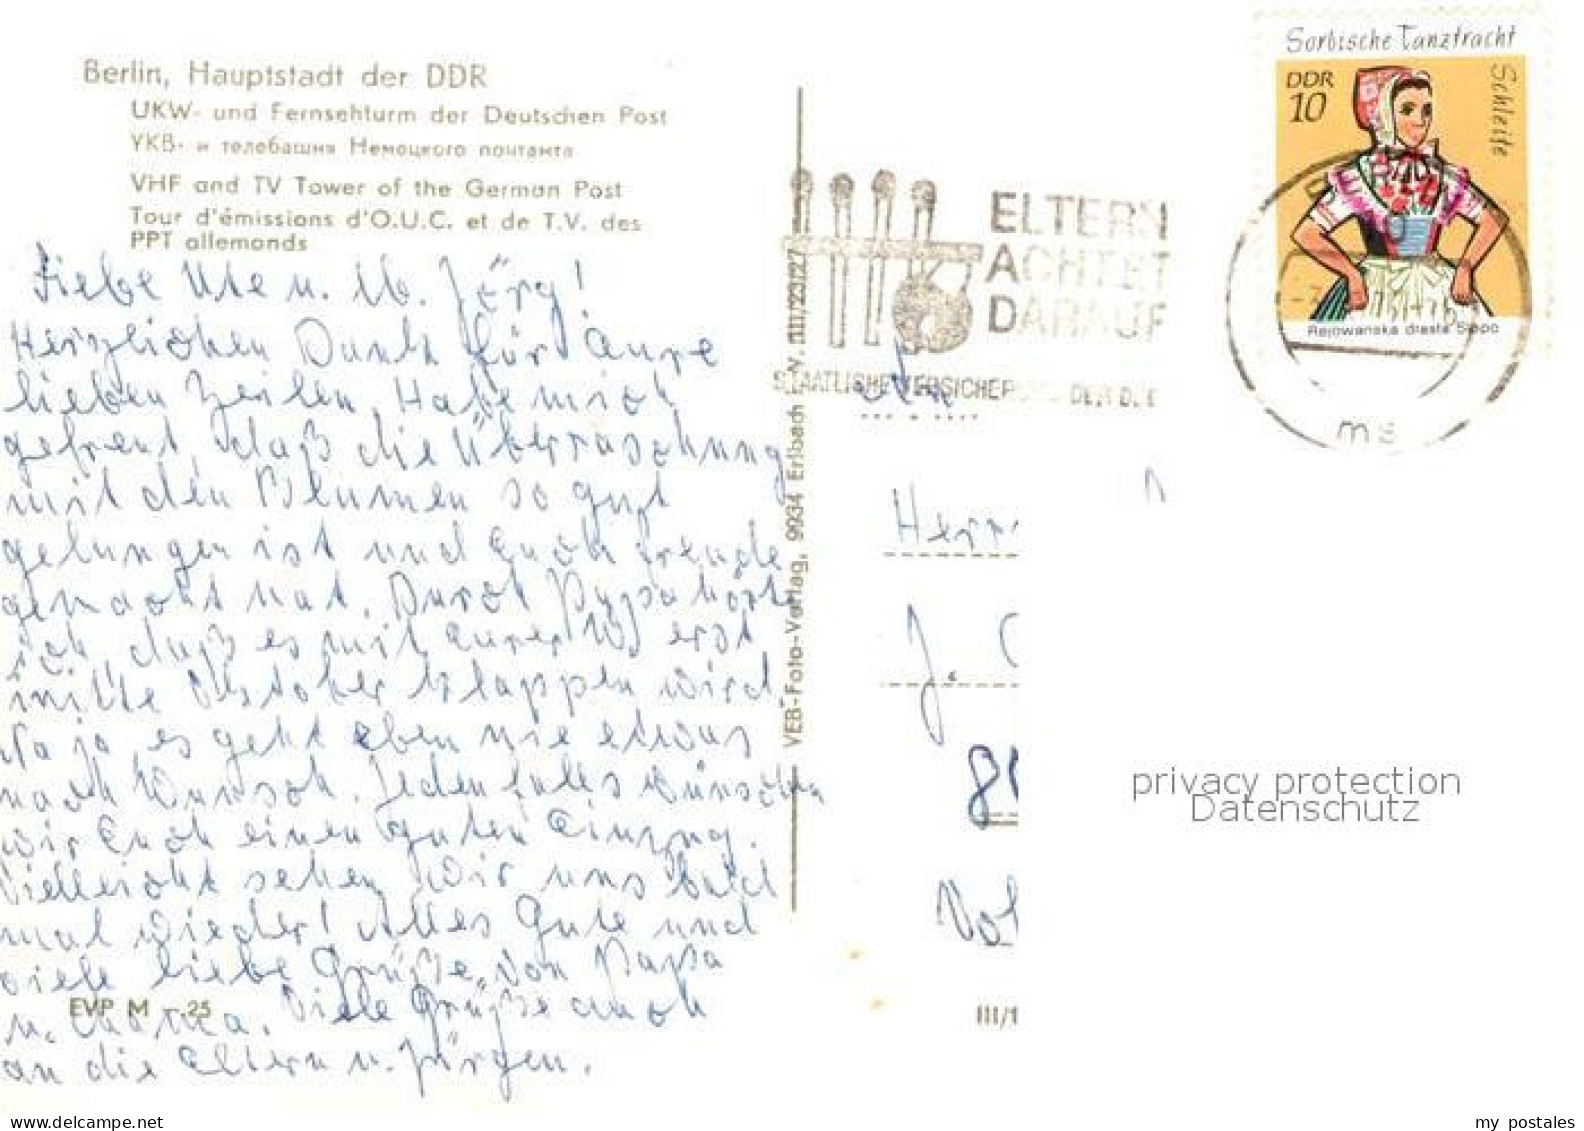 Berlin, Hauptstadt der DDR
UKW- und Fernsehturm der Deutschen Post
УКВ- и телебашня Немецкого почтамта
VHF and TV Tower of the German Post
Tour d'émissions d'O.U.C. et de T.V. des
PPT allemands
Liebe Ute u. lb. Jörg!
Herzlichen Dank für Eure
lieben Zeilen. Habe mich
gefreut, daß die Überraschung
mit den Blumen so gut
gelungen ist und Euch Freude
gemacht hat. Durch Papa hörte
ich, daß es mit Eurer Wo erst
mitte Oktober klappen wird.
Na ja, es geht eben nie etwas
nach Wunsch. Jedenfalls wünschen
wir Euch einen guten Einzug.
Vielleicht sehen wir uns bald
mal wieder! Alles Gute und
viele liebe Grüße von Papa
u. Viele Grüße auch
an die Eltern u. Jürgen.
EVP M -.25
VEB-Foto-Verlag, 9934 Erlbach i. V. III/23/27
ELTERN
ACHTET
DARAUF
STAATLICHE VERSICHERUNG DER DDR
Sorbische Tanztracht
Schleife
DDR
10
Rejowanska drasta Slepo
BERLIN
me
An
Herrn
J.
III/1
privacy protection
Datenschutz
my postales